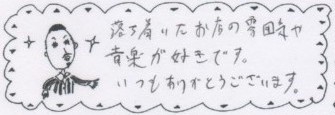 落ち着いたお店の雰囲気や
音楽が好きです。
いつもありがとうございます。